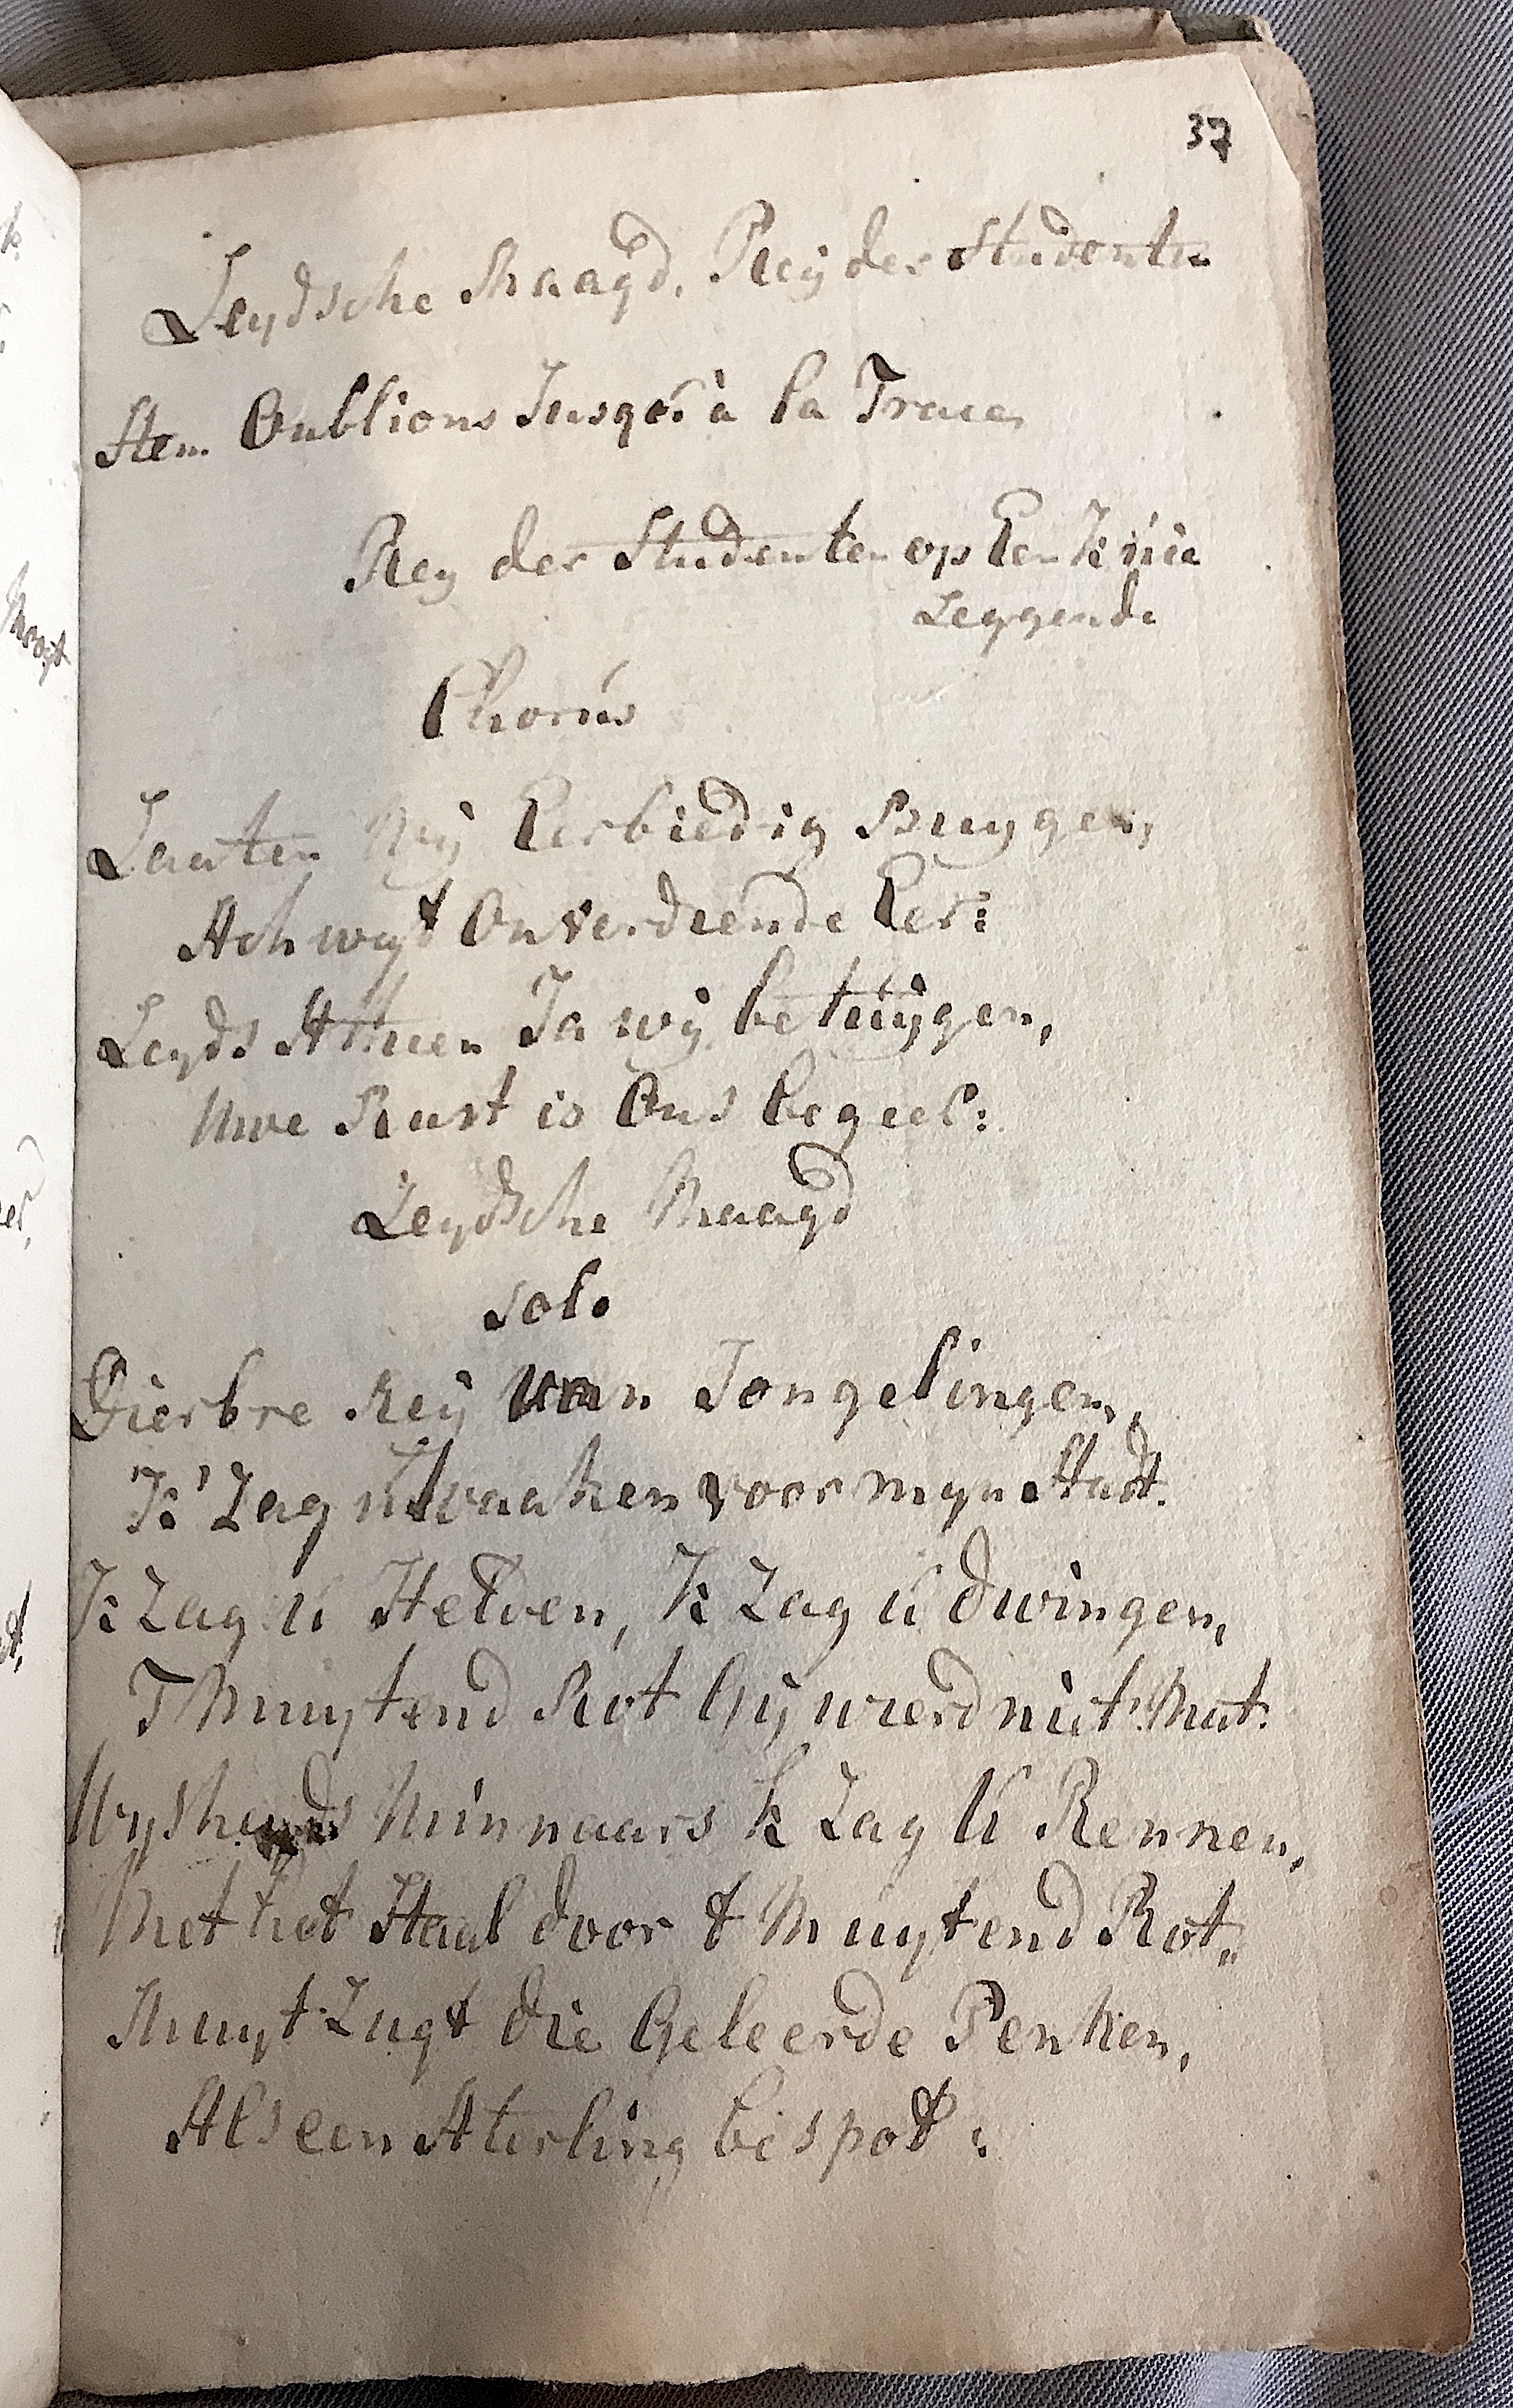 37
Leydsche Maagd, Reij der Studenten
Stem. Oublions Jusqú'à la Trace,
Rey der Studenten op Een Knie
Leggende
Chorus
Laaten Wij Eerbiedig Buygen,
Ach wagt Onverdiende Eer:
Leyds Athuen Ja wij betuijgen,
Uwe Rust is Ons begeer:
Leydsche Maagd
solo
Dierbre Reij van Jongelingen,
'K' Zag ú waaken voor mijn Stadt.
K Zag ú Helden, K Zag ú dwingen,
T Muytend Rot Gij wierd niet Mat:
Wysheyds Minnaars k Zag U Rennen,
Met het Staal door t Muytend Rot,,
Muyt Zugt die Geleerde Penken,
Als een Aterling bespot: